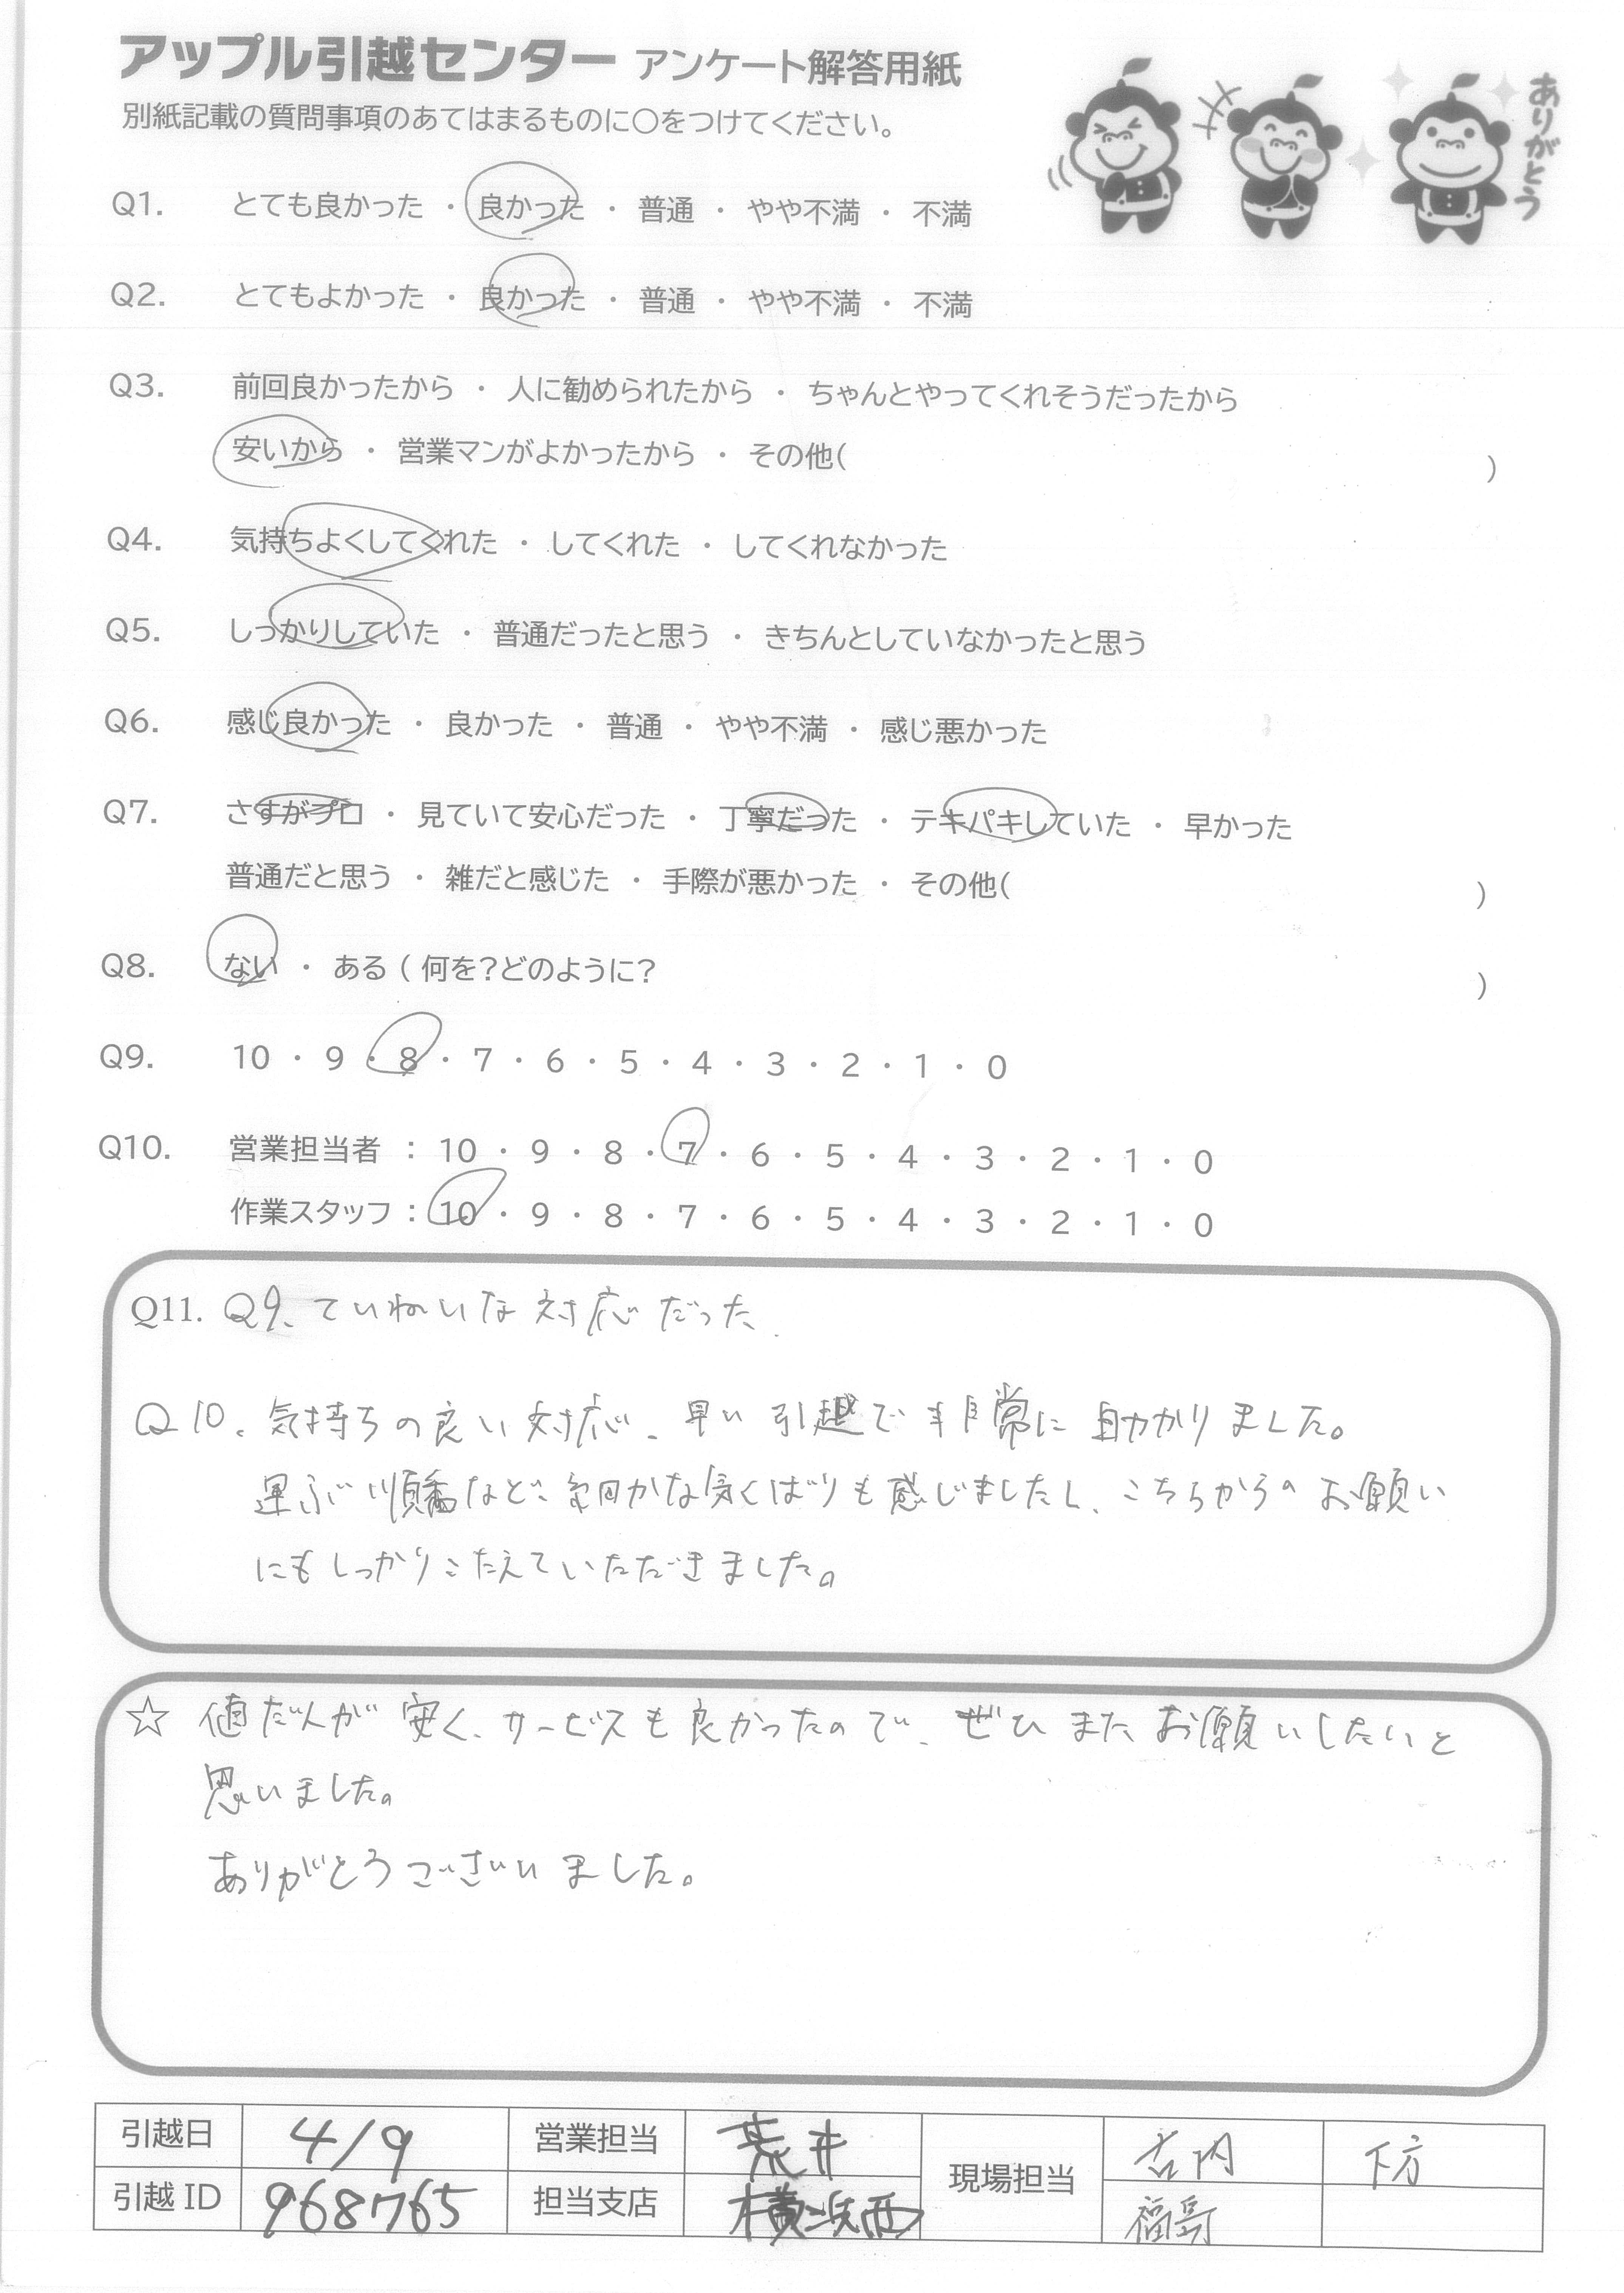 アップル引越センター アンケート解答用紙
別紙記載の質問事項のあてはまるものに○をつけてください。
ありがとう
Q1. とても良かった ・ 良かった ・ 普通 ・ やや不満 ・ 不満
Q2. とてもよかった ・ 良かった ・ 普通 ・ やや不満 ・ 不満
Q3. 前回良かったから ・ 人に勧められたから ・ ちゃんとやってくれそうだったから
安いから ・ 営業マンがよかったから ・ その他( )
Q4. 気持ちよくしてくれた ・ してくれた ・ してくれなかった
Q5. しっかりしていた ・ 普通だったと思う ・ きちんとしていなかったと思う
Q6. 感じ良かった ・ 良かった ・ 普通 ・ やや不満 ・ 感じ悪かった
Q7. さすがプロ ・ 見ていて安心だった ・ 丁寧だった ・ テキパキしていた ・ 早かった
普通だと思う ・ 雑だと感じた ・ 手際が悪かった ・ その他( )
Q8. ない ・ ある ( 何を?どのように? )
Q9. 10 ・ 9 ・ 8 ・ 7 ・ 6 ・ 5 ・ 4 ・ 3 ・ 2 ・ 1 ・ 0
Q10. 営業担当者 : 10 ・ 9 ・ 8 ・ 7 ・ 6 ・ 5 ・ 4 ・ 3 ・ 2 ・ 1 ・ 0
作業スタッフ : 10 ・ 9 ・ 8 ・ 7 ・ 6 ・ 5 ・ 4 ・ 3 ・ 2 ・ 1 ・ 0
Q11. Q9. ていねいな対応だった.
Q10. 気持ちの良い対応、早い引越で非常に助かりました。
運ぶ順番など、細かな気くばりも感じましたし、こちらからのお願い
にもしっかりこたえていただきました。
☆ 値だんが安く、サービスも良かったので、ぜひまたお願いしたいと
思いました。
ありがとうございました。
引越日 4/9 営業担当 荒井 現場担当 古内 下方
引越ID 968765 担当支店 横浜西 福島